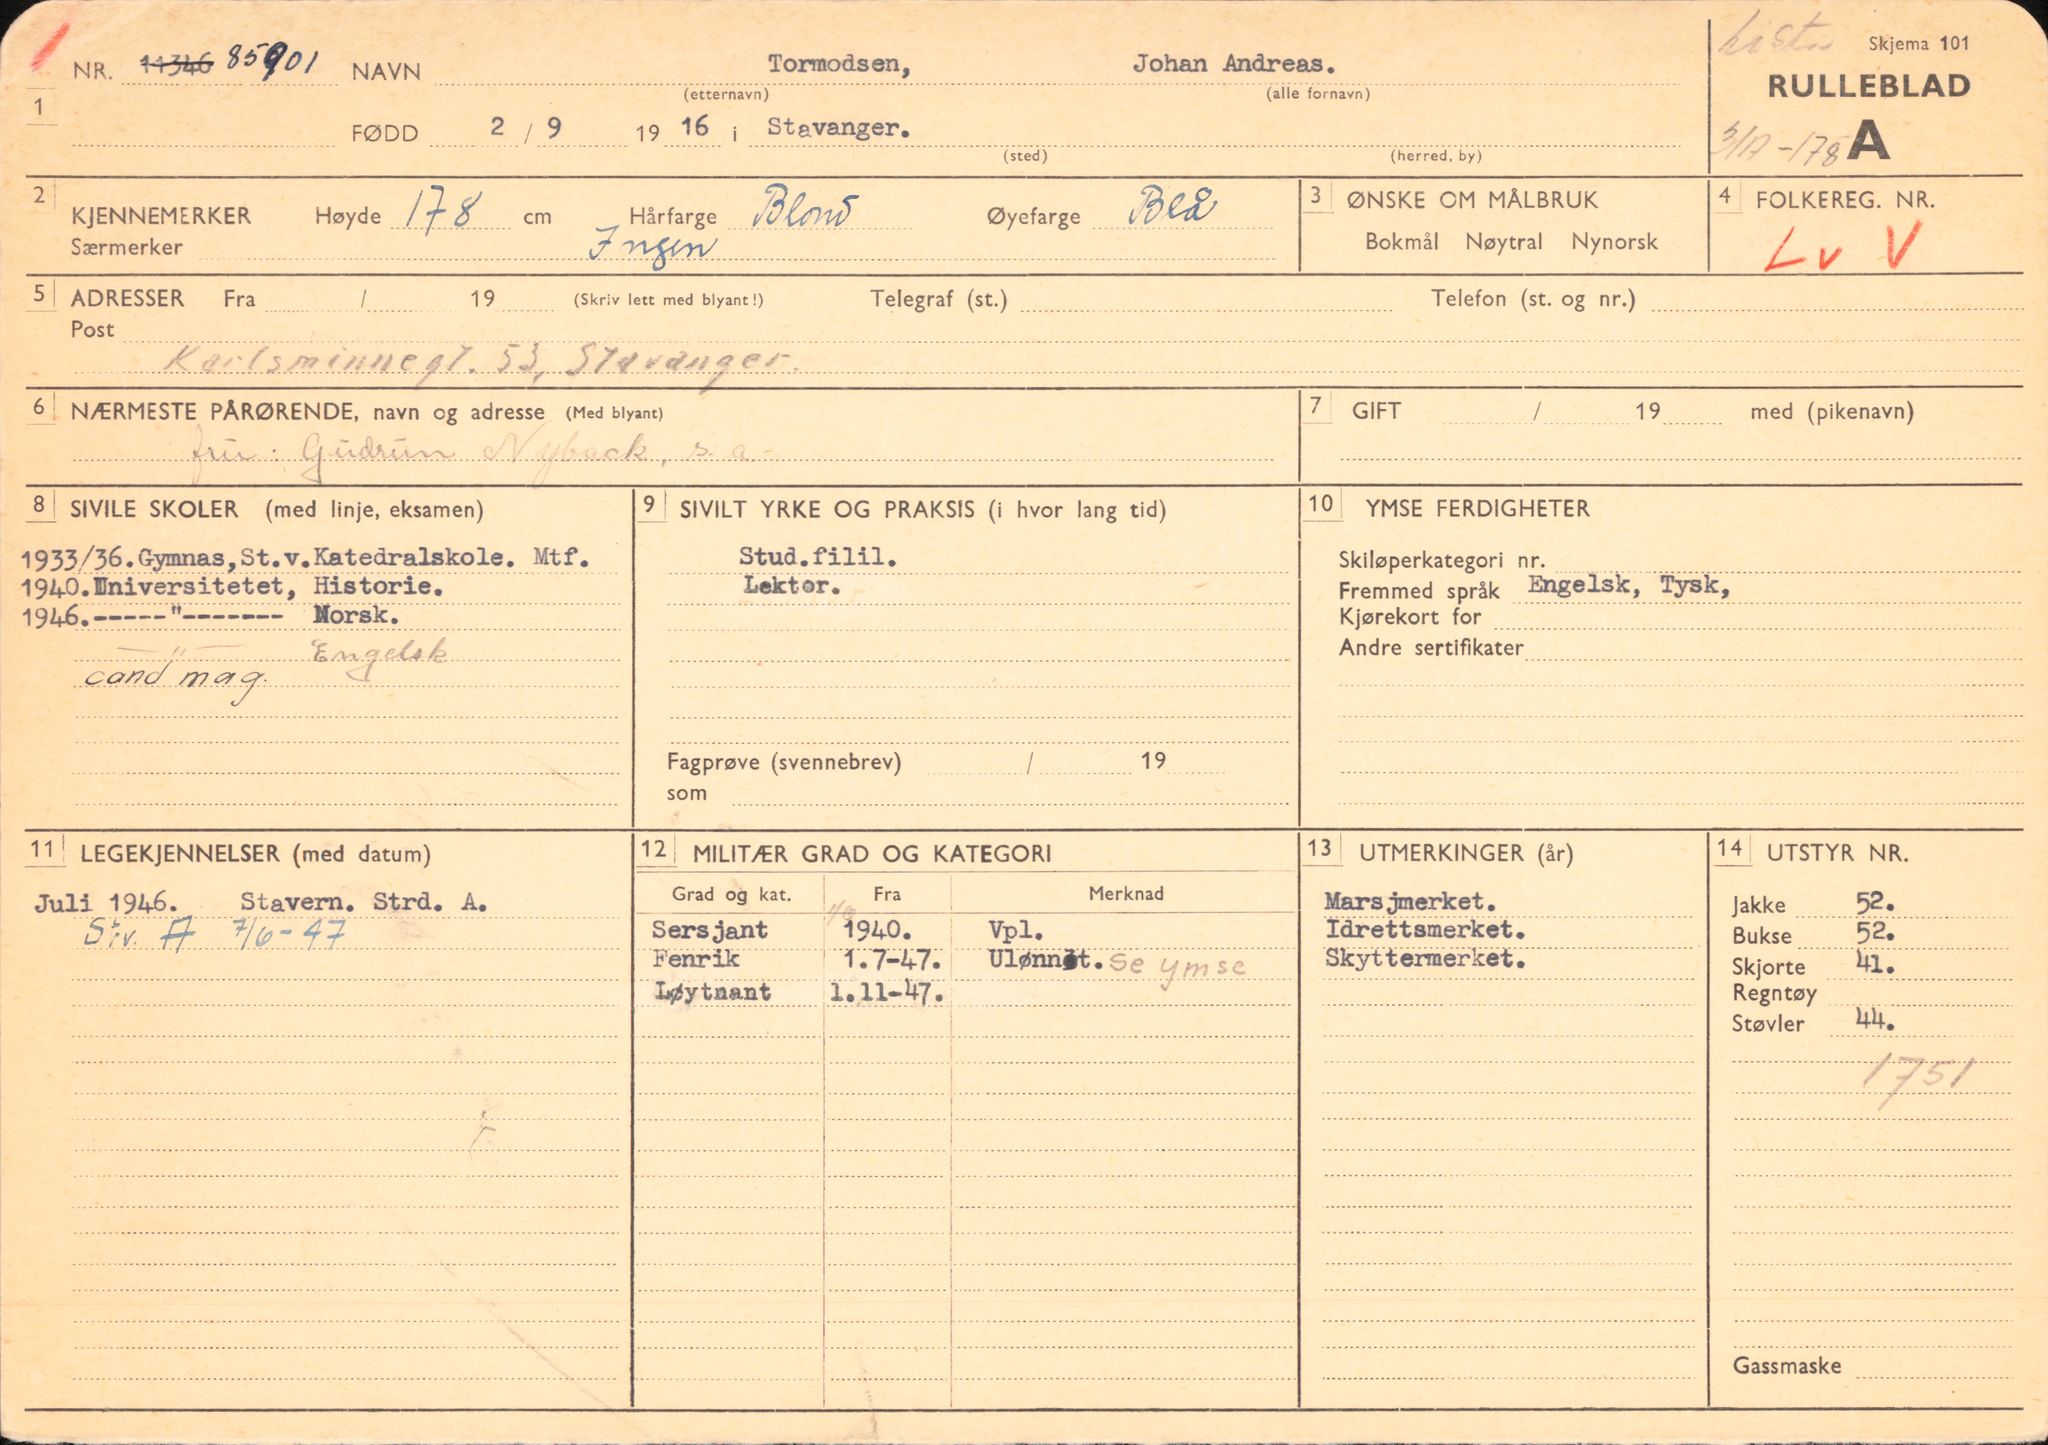 Lista Skjema 101
NR. 11346 85901 NAVN Tormodsen, Johan Andreas.
(etternavn) (alle fornavn)
RULLEBLAD
1
FØDD 2 / 9 19 16 i Stavanger.
(sted) (herred, by)
3/A-178 A
2 KJENNEMERKER Høyde 178 cm Hårfarge Blond Øyefarge Blå
Særmerker Ingen
3 ØNSKE OM MÅLBRUK
Bokmål Nøytral Nynorsk
4 FOLKEREG. NR.
Lv V
5 ADRESSER Fra / 19 (Skriv lett med blyant!) Telegraf (st.) Telefon (st. og nr.)
Post
Karlsminnegt. 53, Stavanger.
6 NÆRMESTE PÅRØRENDE, navn og adresse (Med blyant)
fru: Gudrun Nyback, s. a.
7 GIFT / 19 med (pikenavn)
8 SIVILE SKOLER (med linje, eksamen)
1933/36. Gymnas, St.v. Katedralskole. Mtf.
1940. Universitetet, Historie.
1946.-----"------- Norsk.
— " — Engelsk
cand mag.
9 SIVILT YRKE OG PRAKSIS (i hvor lang tid)
Stud.filil.
Lektor.
Fagprøve (svennebrev) / 19
som
10 YMSE FERDIGHETER
Skiløperkategori nr.
Fremmed språk Engelsk, Tysk,
Kjørekort for
Andre sertifikater
11 LEGEKJENNELSER (med datum)
Juli 1946. Stavern. Strd. A.
Stv. A 7/6-47
12 MILITÆR GRAD OG KATEGORI
Grad og kat. Fra Merknad
Sersjant 1940. Vpl.
Fenrik 1.7-47. Ulønnet. se ymse
Løytnant 1.11-47.
13 UTMERKINGER (år)
Marsjmerket.
Idrettsmerket.
Skyttermerket.
14 UTSTYR NR.
Jakke 52.
Bukse 52.
Skjorte 41.
Regntøy
Støvler 44.
1751
Gassmaske